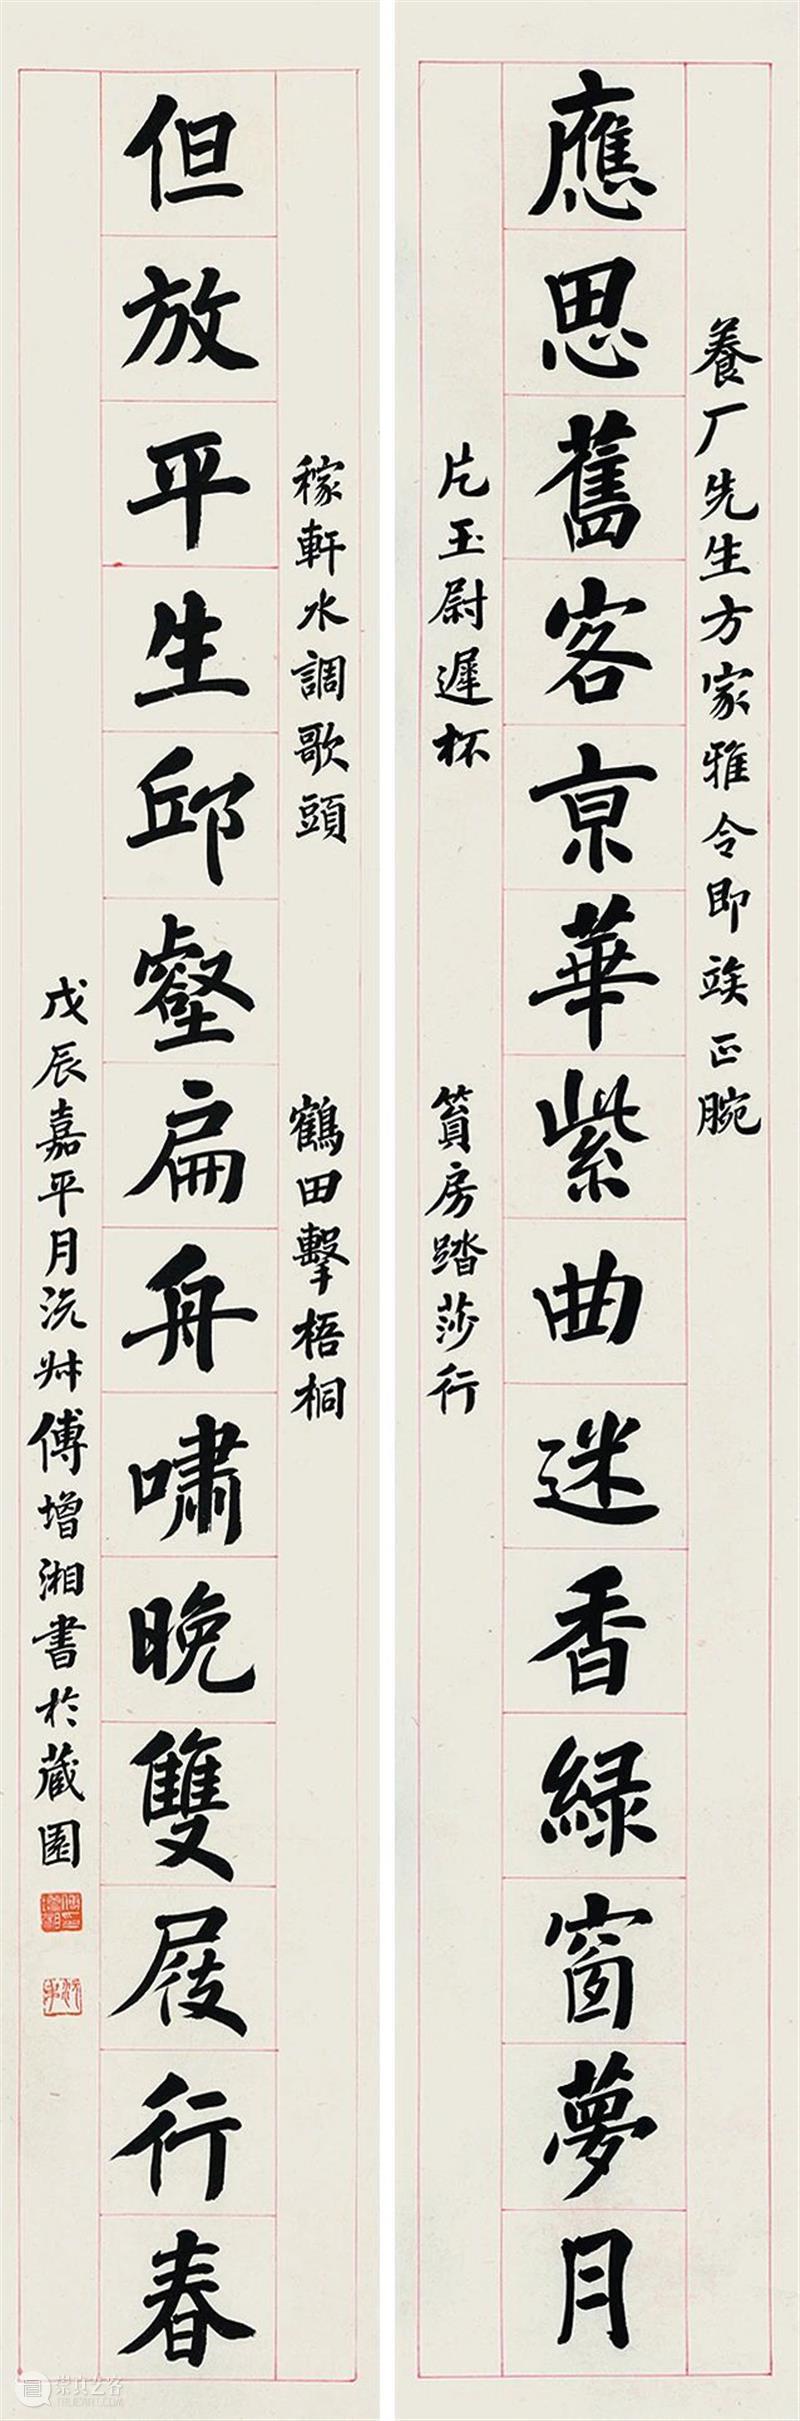 養厂先生方家雅令即竢正腕
應思舊客亰華紫曲迷香緑窗夢月
片玉尉遲杯
篔房踏莎行
稼軒水調歌頭
鶴田擊梧桐
但放平生邱壑扁舟嘯晚雙屐行春
戊辰嘉平月沅叔傅增湘書於藏園
崇真艺客